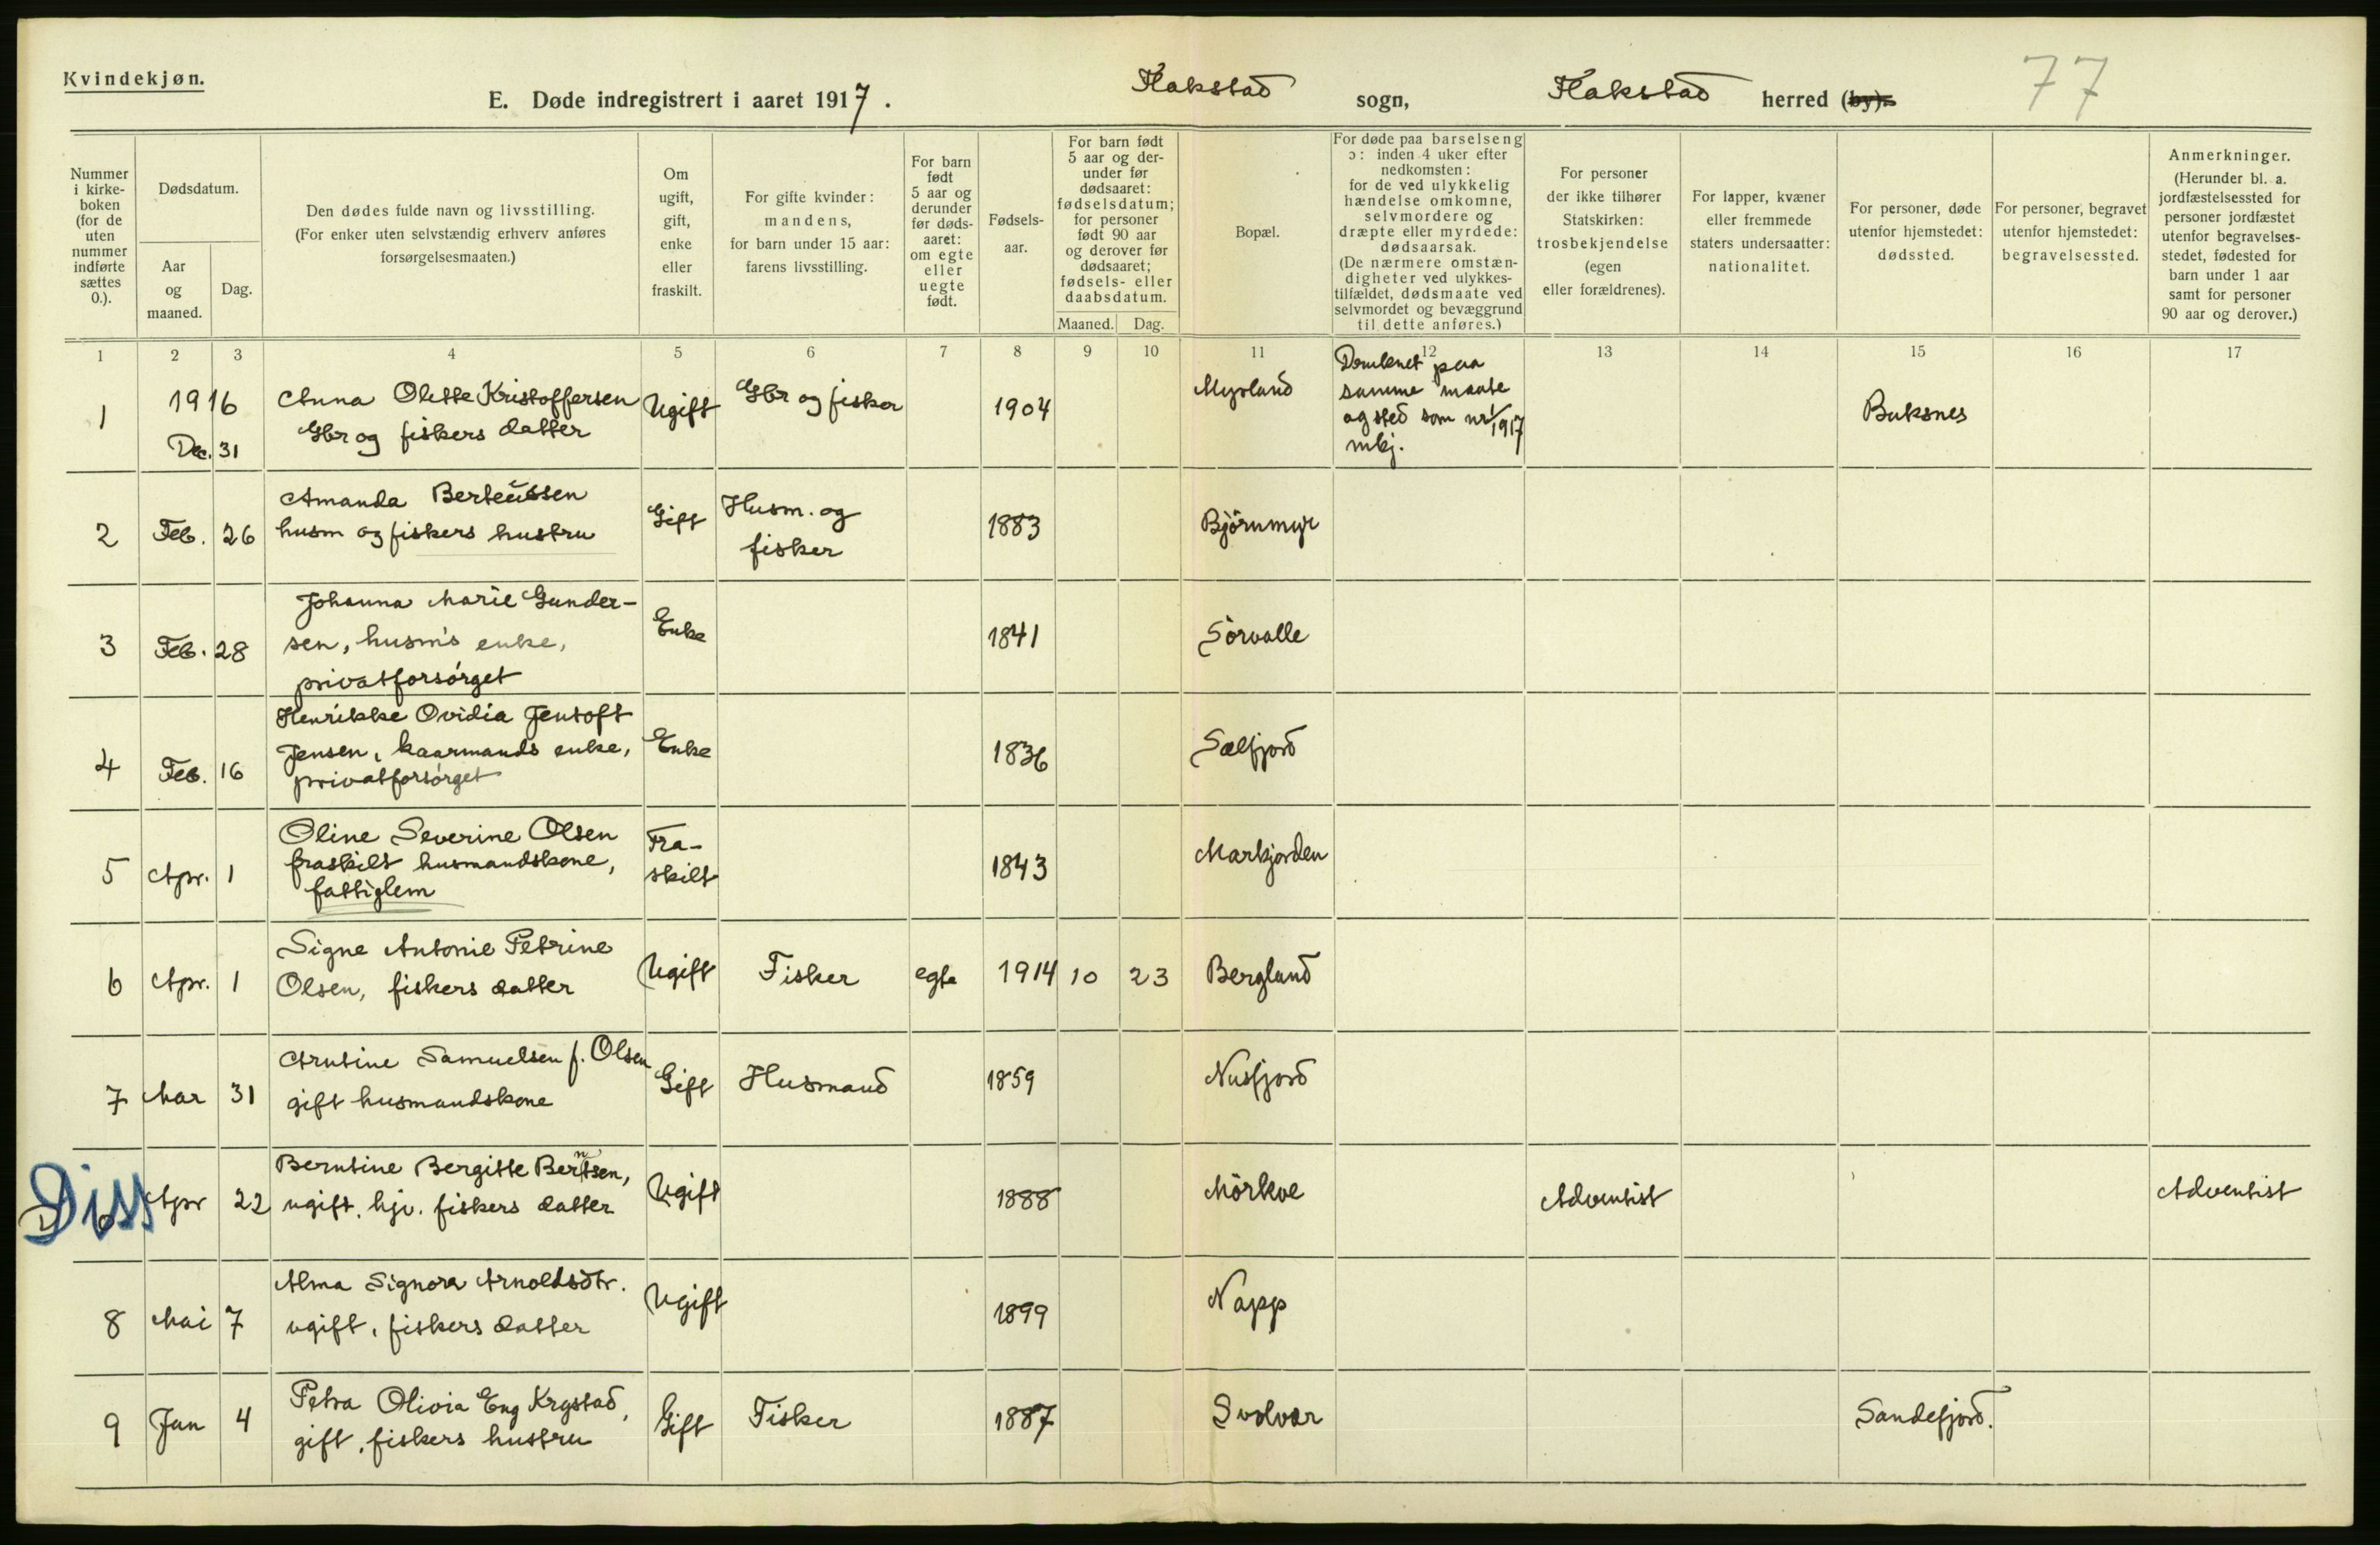 Kvindekjøn.
E. Døde indregistrert i aaret 1917.
Flakstad sogn, Flakstad herred (by).
77
Nummer i kirke-boken (for de uten nummer indførte sættes 0.).
Dødsdatum.
Aar og maaned.
Dag.
Den dødes fulde navn og livsstilling.
(For enker uten selvstændig erhverv anføres
forsørgelsesmaaten.)
Om ugift, gift, enke eller fraskilt.
For gifte kvinder:
mandens,
for barn under 15 aar:
farens livsstilling.
For barn født 5 aar og derunder før døds-aaret: om egte eller uegte født.
Fødsels-aar.
For barn født 5 aar og der-under før dødsaaret: fødselsdatum; for personer født 90 aar og derover før dødsaaret; fødsels- eller daabsdatum.
Maaned.
Dag.
Bopæl.
For døde paa barselseng
ɔ: inden 4 uker efter
nedkomsten:
for de ved ulykkelig
hændelse omkomne,
selvmordere og
dræpte eller myrdede:
dødsaarsak.
(De nærmere omstæn-
digheter ved ulykkes-
tilfældet, dødsmaate ved
selvmordet og bevæggrund
til dette anføres.)
For personer
der ikke tilhører
Statskirken:
trosbekjendelse
(egen
eller forældrenes).
For lapper, kvæner
eller fremmede
staters undersaatter:
nationalitet.
For personer, døde
utenfor hjemstedet:
dødssted.
For personer, begravet
utenfor hjemstedet:
begravelsessted.
Anmerkninger.
(Herunder bl. a.
jordfæstelsessted for
personer jordfæstet
utenfor begravelses-
stedet, fødested for
barn under 1 aar
samt for personer
90 aar og derover.)
1 2 3 4 5 6 7 8 9 10 11 12 13 14 15 16 17
1 1916 Dec. 31
Anna Olette Kristoffersen
Gbr og fiskers datter
Ugift Gbr og fisker 1904 Myrland
Druknet paa
samme maate
og sted som nr 1/1917
mkj.
Buksnes
2 Feb. 26
Amanda Berteussen
husm og fiskers hustru
Gift Husm. og
fisker
1883 Björnmyr
3 Feb. 28
Johanna Marie Gunder-
sen, husm's enke,
privatforsörget
Enke 1841 Sörvalle
4 Feb. 16
Henrikke Ovidia Jentoft
Jensen, kaarmands enke,
privatforsörget
Enke 1836 Selfjord
5 Apr. 1
Oline Severine Olsen
fraskilt husmandskone,
fattiglem
Fra-
skilt
1843 Markjorden
6 Apr. 1
Signe Antonie Petrine
Olsen, fiskers datter
Ugift Fisker egte 1914 10 23 Bergland
7 Mar 31
Arntine Samuelsen f. Olsen
gift husmandskone
Gift Husmand 1859 Nusfjord
Diss Apr 22
Berntine Bergitte Berntsen,
ugift. hjv. fiskers datter
Ugift 1888 Mörkve Adventist Adventist
8 Mai 7
Alma Signora Arnoldsdtr.
ugift, fiskers datter
Ugift 1899 Napp
9 Jan 4
Petra Olivia Eng Krystad,
gift, fiskers hustru
Gift Fisker 1887 Svolvær Sandefjord.